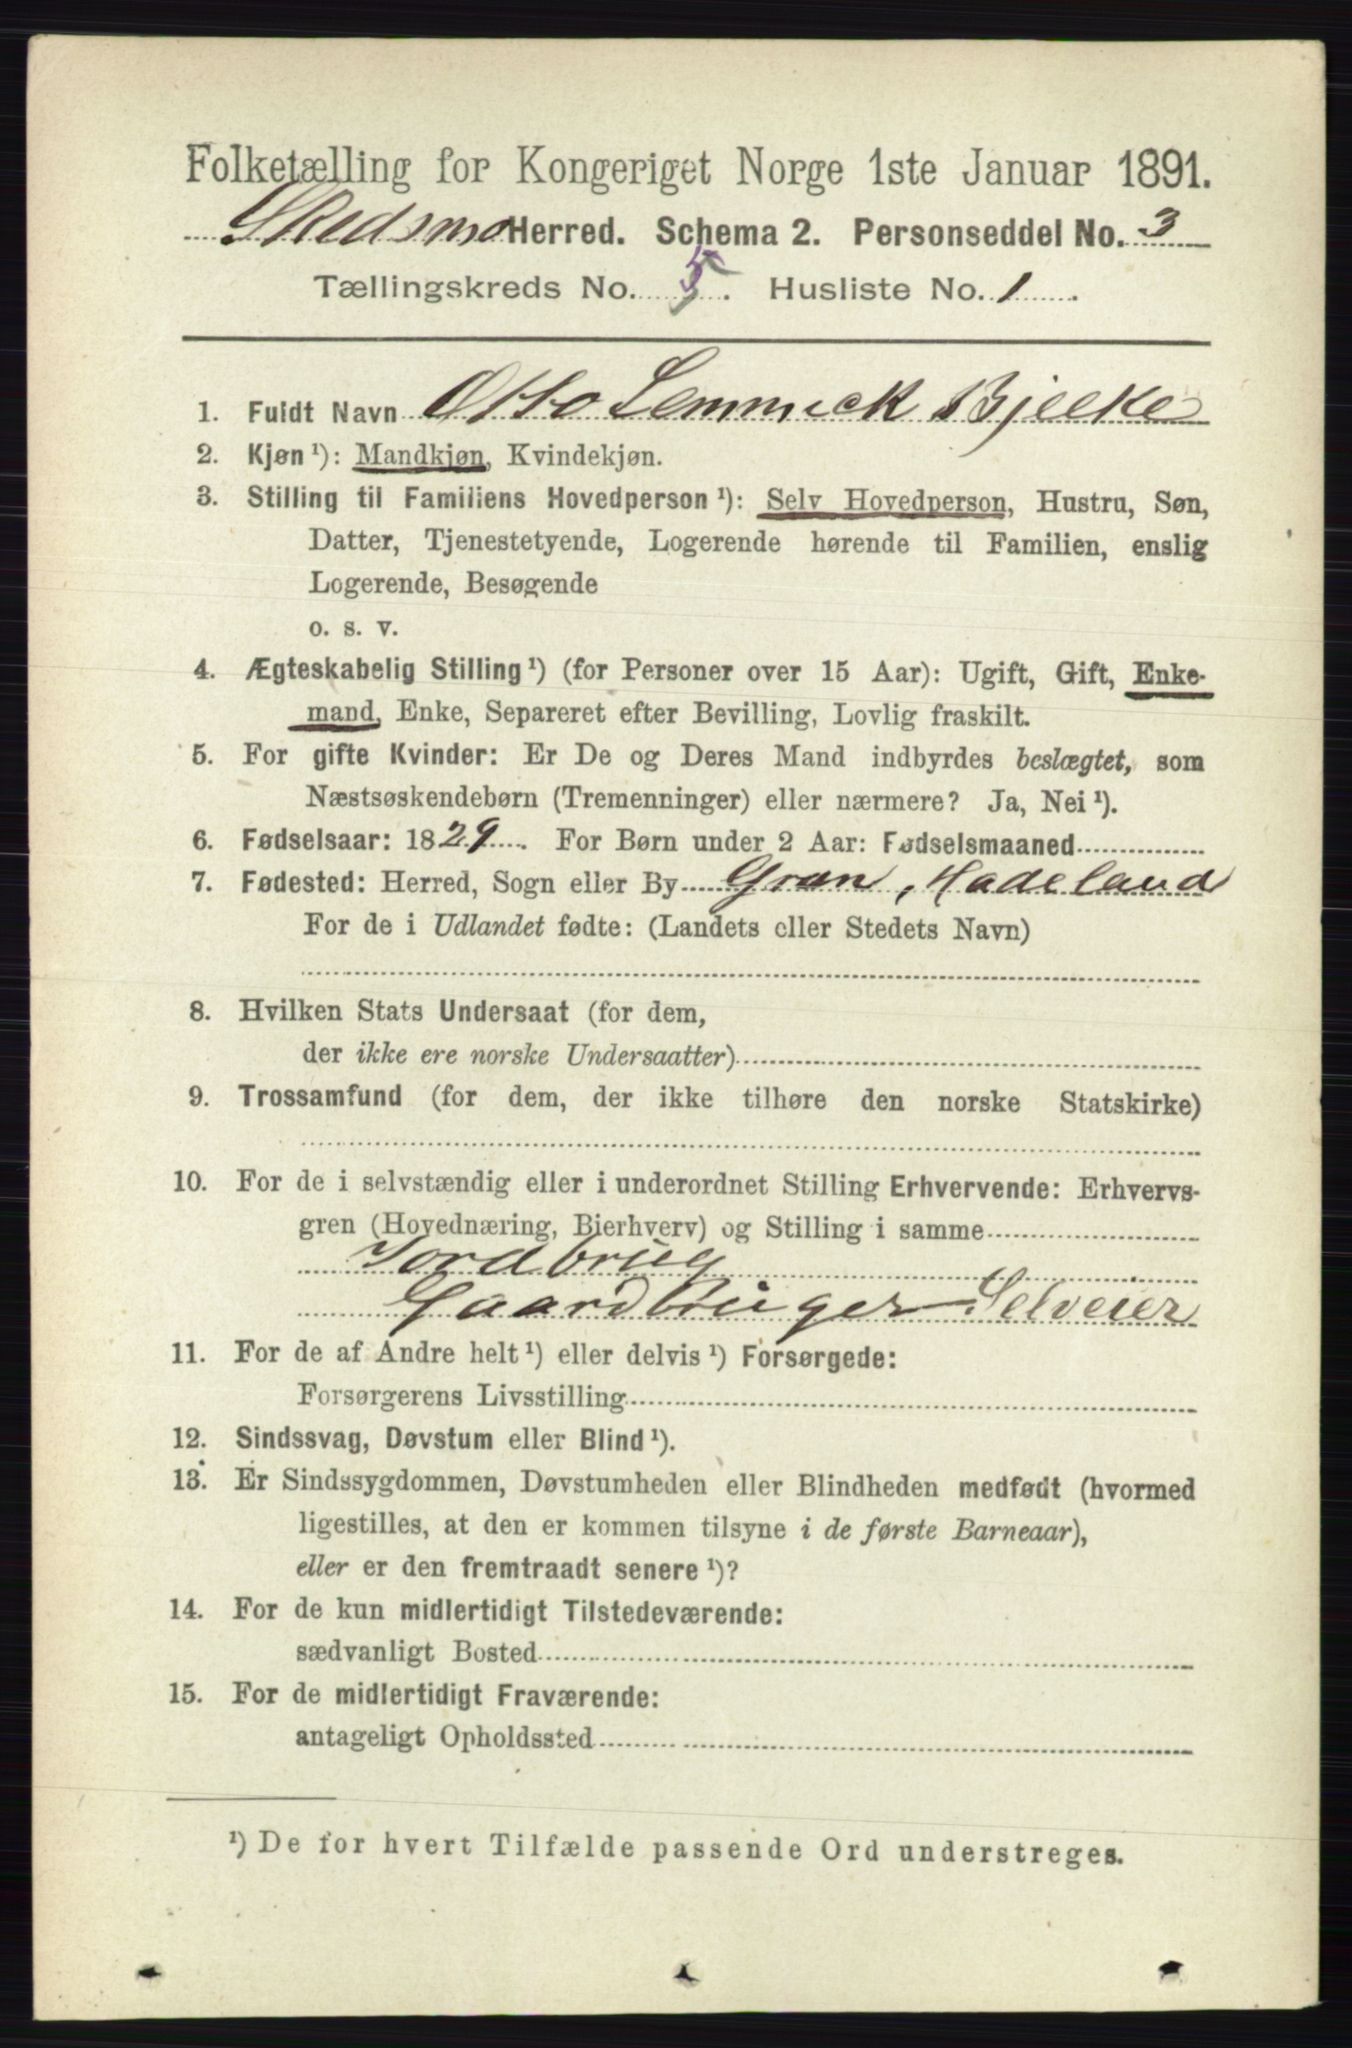 Folketælling for Kongeriget Norge 1ste Januar 1891.
Skedsmo Herred. Schema 2. Personseddel No. 3
Tællingskreds No. 5. Husliste No. 1.
1. Fuldt Navn Otto Lemmick Bjelke
2. Kjøn ¹): Mandkjøn, Kvindekjøn.
3. Stilling til Familiens Hovedperson ¹): Selv Hovedperson, Hustru, Søn,
Datter, Tjenestetyende, Logerende hørende til Familien, enslig
Logerende, Besøgende
o. s. v.
4. Ægteskabelig Stilling ¹) (for Personer over 15 Aar): Ugift, Gift, Enke-
mand, Enke, Separeret efter Bevilling, Lovlig fraskilt.
5. For gifte Kvinder: Er De og Deres Mand indbyrdes beslægtet, som
Næstsøskendebørn (Tremenninger) eller nærmere? Ja, Nei ¹).
6. Fødselsaar: 1829. For Børn under 2 Aar: Fødselsmaaned
7. Fødested: Herred, Sogn eller By Gran, Hadeland
For de i Udlandet fødte: (Landets eller Stedets Navn)
8. Hvilken Stats Undersaat (for dem,
der ikke ere norske Undersaatter)
9. Trossamfund (for dem, der ikke tilhøre den norske Statskirke)
10. For de i selvstændig eller i underordnet Stilling Erhvervende: Erhvervs-
gren (Hovednæring, Bierhverv) og Stilling i samme
Jordbrug
Gaardbruger Selveier
11. For de af Andre helt ¹) eller delvis ¹) Forsørgede:
Forsørgerens Livsstilling
12. Sindssvag, Døvstum eller Blind ¹).
13. Er Sindssygdommen, Døvstumheden eller Blindheden medfødt (hvormed
ligestilles, at den er kommen tilsyne i de første Barneaar),
eller er den fremtraadt senere ¹)?
14. For de kun midlertidigt Tilstedeværende:
sædvanligt Bosted
15. For de midlertidigt Fraværende:
antageligt Opholdssted
¹) De for hvert Tilfælde passende Ord understreges.